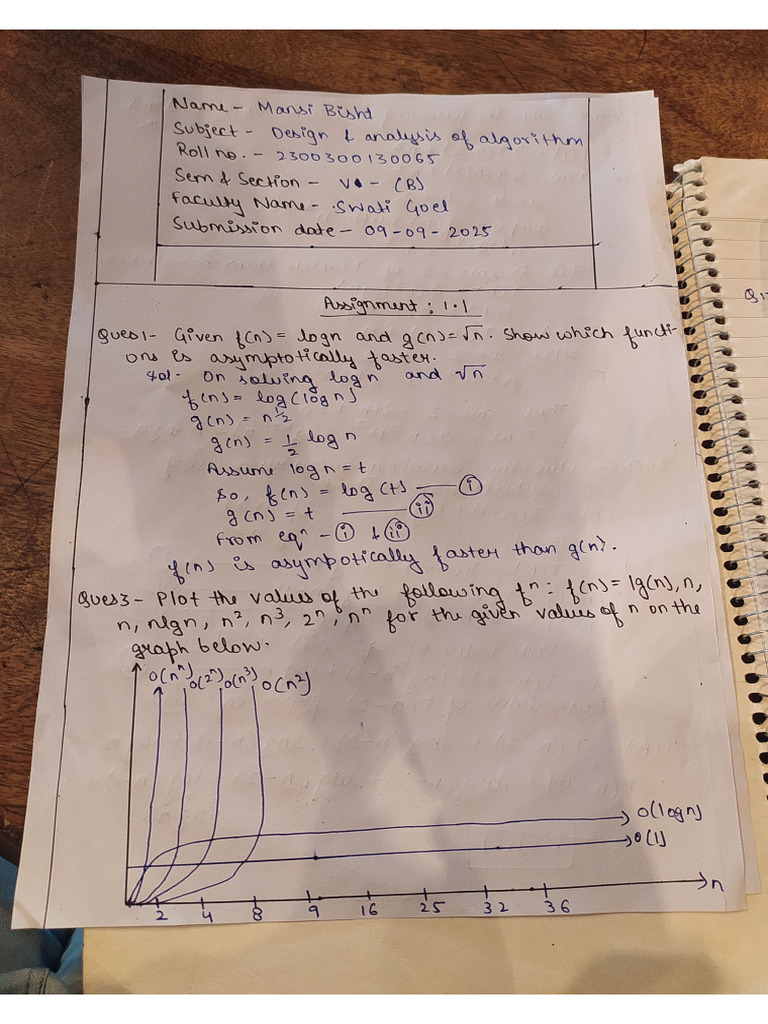 Name - Mansi Bisht
Subject - Design & analysis of algorithm
Roll no. - 2300300130065
Sem & Section - V - (B)
Faculty Name - Swati Goel
Submission date - 09-09-2025
Assignment : 1.1
Ques1- Given f(n) = logn and g(n) = √n. Show which functi-
ons is asymptotically faster.
Sol- On solving log n and √n
f(n) = log(log n)
g(n) = n^1/2
g(n) = 1/2 log n
Assume log n = t
So, f(n) = log (t) — (i)
g(n) = t — (ii)
from eqⁿ - (i) & (ii)
f(n) is asympotically faster than g(n).
Ques3 - Plot the values of the following fⁿ : f(n) = lg(n), n,
n, nlgn, n², n³, 2ⁿ, nⁿ for the given values of n on the
graph below.
O(nⁿ) O(2ⁿ) O(n³) O(n²)
O(logn)
O(1)
n
2 4 8 9 16 25 32 36